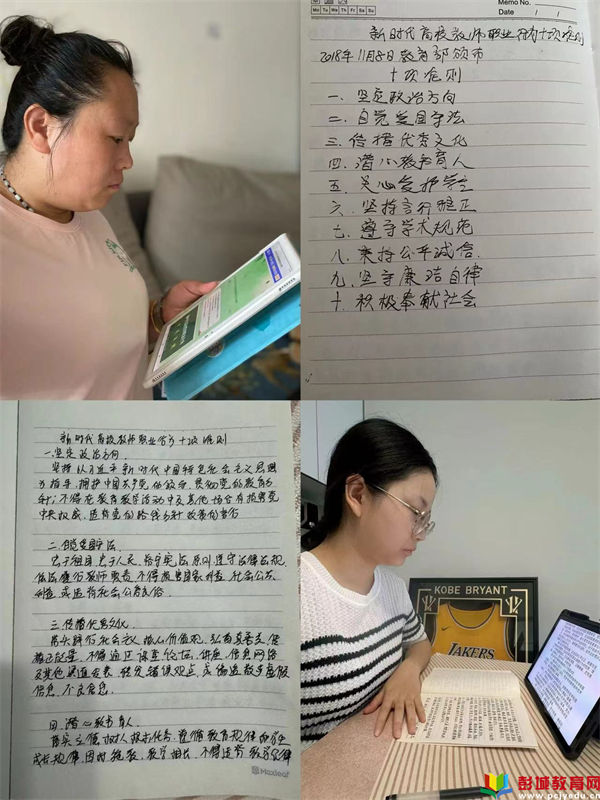 Memo No.
Mo Tu We Th Fr Sa Su
Date / /
新时代高校教师职业行为十项准则
2018年11月8日教育部颁布
十项准则
一、坚定政治方向
二、自觉爱国守法
三、传播优秀文化
四、潜心教书育人
五、关心爱护学生
六、坚持言行雅正
七、遵守学术规范
八、秉持公平诚信
九、坚守廉洁自律
十、积极奉献社会
新时代高校教师职业行为十项准则
一.坚定政治方向.
坚持以习近平新时代中国特色社会主义思想
为指导,拥护中国共产党的领导,贯彻党的教育方
针;不得在教育教学活动中及其他场合有损害党
中央权威、违背党的路线方针政策的言行
二.自觉爱国守法.
忠于祖国,忠于人民,恪守宪法原则,遵守法律法规,
依法履行教师职责;不得损害国家利益、社会公共
利益,或违背社会公序良俗.
三.传播优秀文化.
带头践行社会主义核心价值观,弘扬真善美,传
递正能量;不得通过课堂、论坛、讲座、信息网络
及其他渠道发表、转发错误观点,或编造散布虚假
信息、不良信息.
四.潜心教书育人.
落实立德树人根本任务,遵循教育规律和学生
成长规律,因材施教,教学相长;不得违背教学纪律
Maxleaf
KOBE BRYANT
LAKERS
彭城教育网
www.pcjyedu.cn